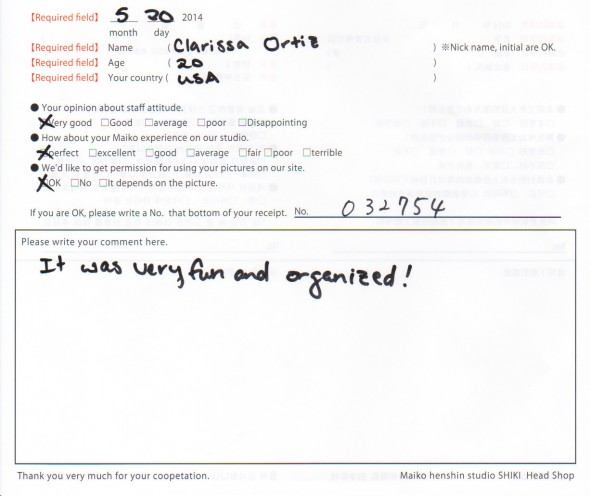 【Required field】 5 20 2014
month day
【Required field】 Name ( Clarissa Ortiz ) ※Nick name, initial are OK.
【Required field】 Age ( 20 )
【Required field】 Your country ( USA )
● Your opinion about staff attitude.
☒Very good ☐Good ☐average ☐poor ☐Disappointing
● How about your Maiko experience on our studio.
☒perfect ☐excellent ☐good ☐average ☐fair ☐poor ☐terrible
● We'd like to get permission for using your pictures on our site.
☒OK ☐No ☐It depends on the picture.
If you are OK, please write a No. that bottom of your receipt. No. 032754
Please write your comment here.
It was very, fun and organized!
Thank you very much for your coopetation. Maiko henshin studio SHIKI Head Shop